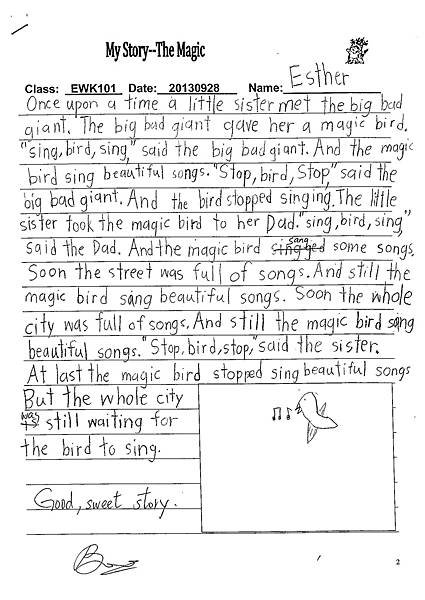 My Story--The Magic
Class: EWK101 Date: 20130928 Name: Esther
Once upon a time a little sister met the big bad
giant. The big bad giant gave her a magic bird.
"sing, bird, sing," said the big bad giant. And the magic
bird sing beautiful songs. "Stop, bird, Stop," said the
big bad giant. And the bird stopped singing. The little
sister took the magic bird to her Dad. "sing, bird, sing,"
said the Dad. And the magic bird singged sang some songs.
Soon the street was full of songs. And still the
magic bird sang beautiful songs. Soon the whole
city was full of songs. And still the magic bird sang
beautiful songs. "Stop, bird, stop," said the sister.
At last the magic bird stopped sing beautiful songs
But the whole city
was still waiting for
the bird to sing.
Good, sweet story.
2